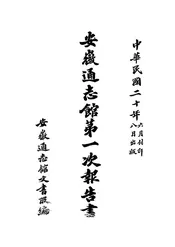 中華民國二十年六月付印
八月出版
安徽通志館第一次報告書
安徽通志館文書股編